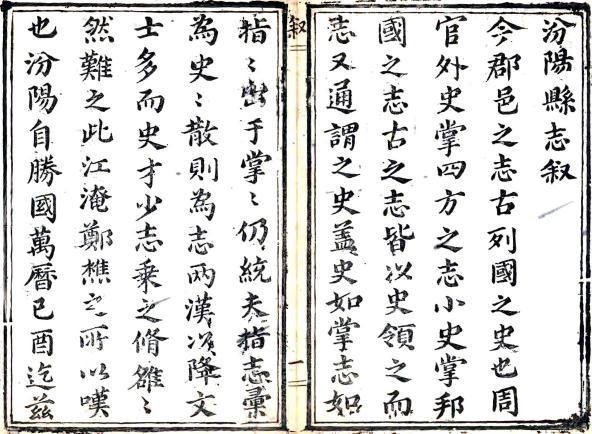 汾陽縣志叙
今郡邑之志古列國之史也周
官外史掌四方之志小史掌邦
國之志古之志皆以史領之而
志又通謂之史盖史如掌志如
叙
一
指〻出于掌〻仍統夫指志彙
為史〻散則為志两漢以降文
士多而史才少志乘之脩雖〻
然難之此江淹鄭樵之所以嘆
也汾陽自勝國萬曆己酉迄兹